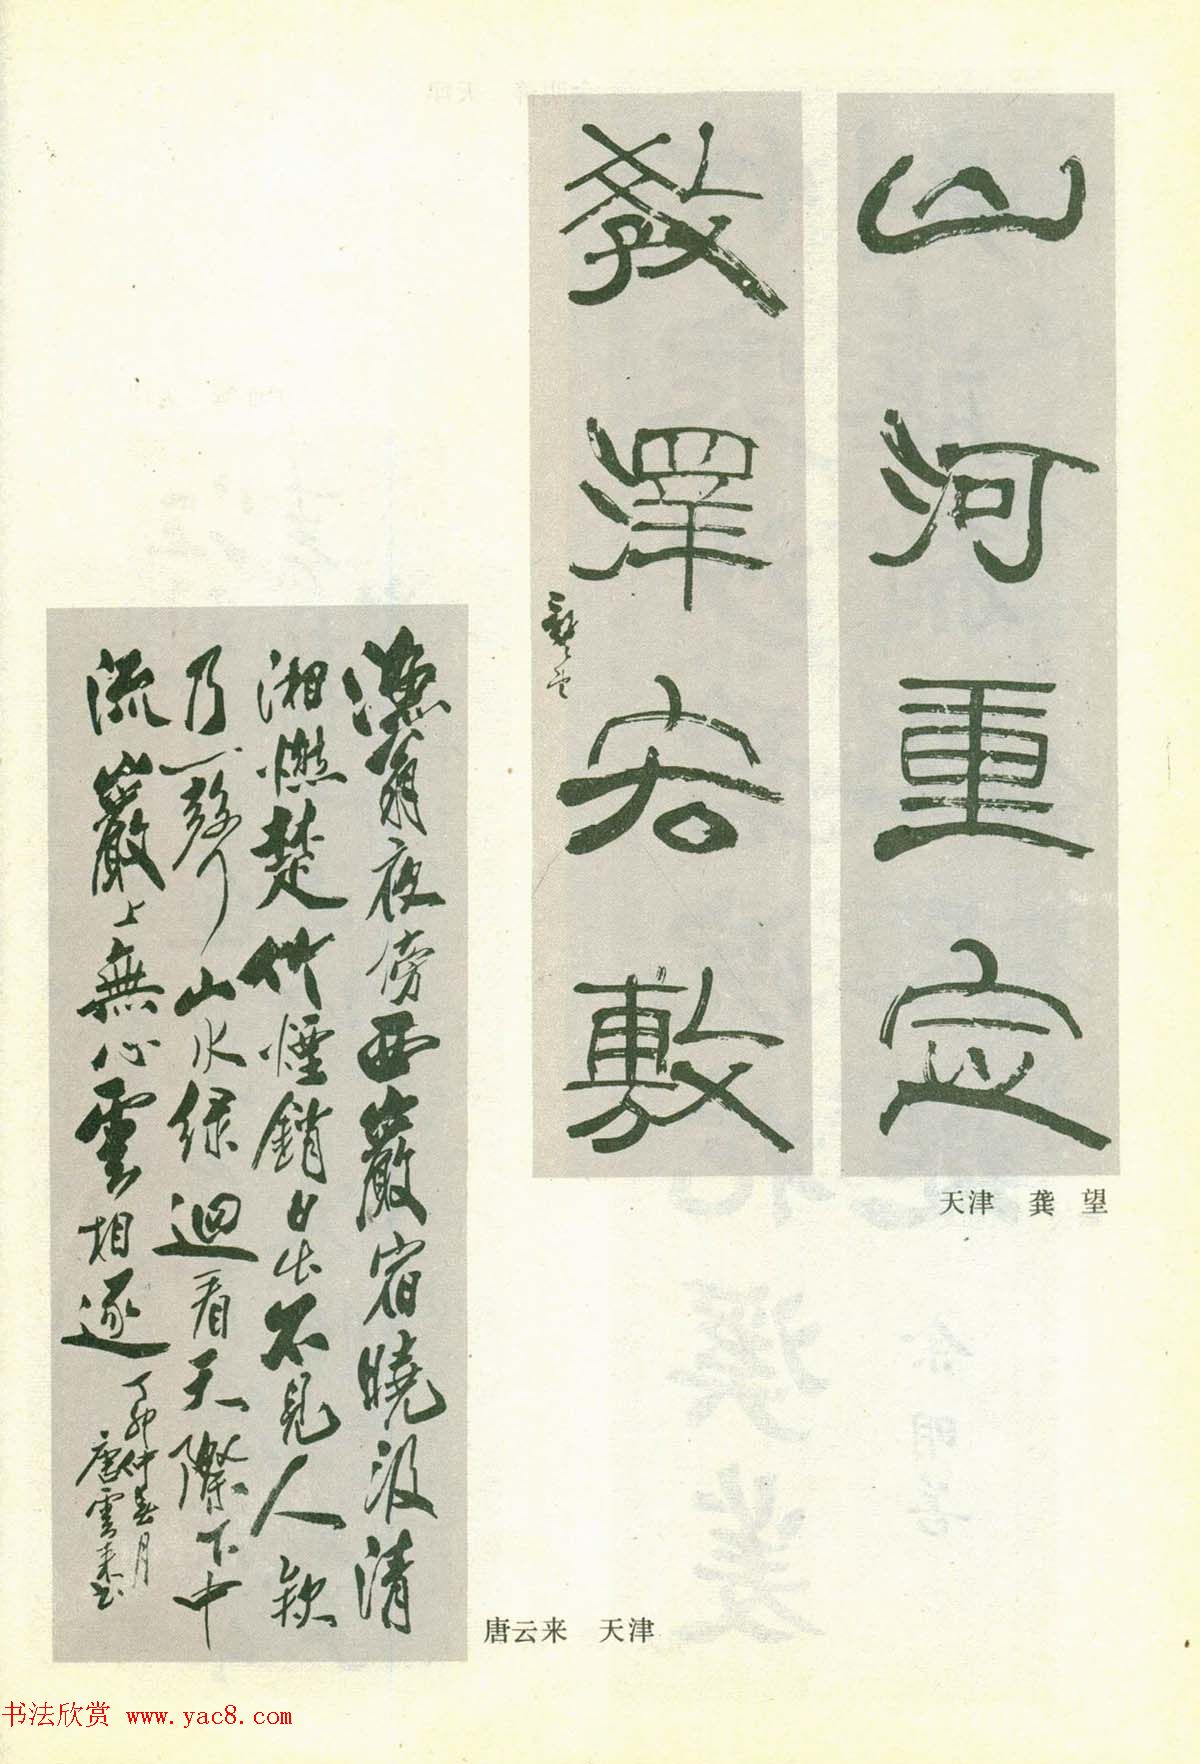 山河重定
教澤宏敷
龔望
天津 龚 望
漁翁夜傍西巖宿曉汲清
湘燃楚竹煙銷日出不見人欸
乃一聲山水緑迴看天際下中
流巖上無心雲相逐
丁卯仲春月
唐雲來書
唐云来 天津
书法欣赏 www.yac8.com